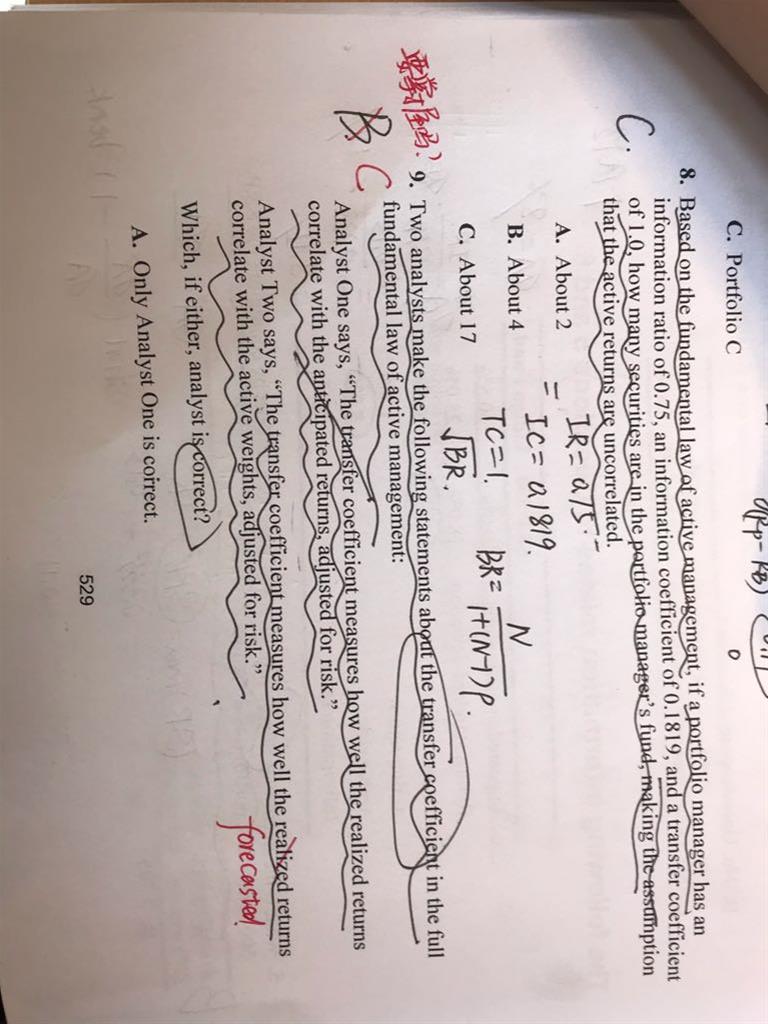 C. Portfolio C
0
C.
8. Based on the fundamental law of active management, if a portfolio manager has an
information ratio of 0.75, an information coefficient of 0.1819, and a transfer coefficient
of 1.0, how many securities are in the portfolio manager's fund, making the assumption
that the active returns are uncorrelated.
A. About 2
B. About 4
C. About 17
IR = 0.75.
= IC = 0.1819.
TC = 1.
√BR.
BR = N / 1+(N-1)ρ.
B C
9. Two analysts make the following statements about the transfer coefficient in the full
fundamental law of active management:
Analyst One says, "The transfer coefficient measures how well the realized returns
correlate with the anticipated returns, adjusted for risk."
Analyst Two says, "The transfer coefficient measures how well the realized returns
forecasted
correlate with the active weights, adjusted for risk."
Which, if either, analyst is correct?
A. Only Analyst One is correct.
529